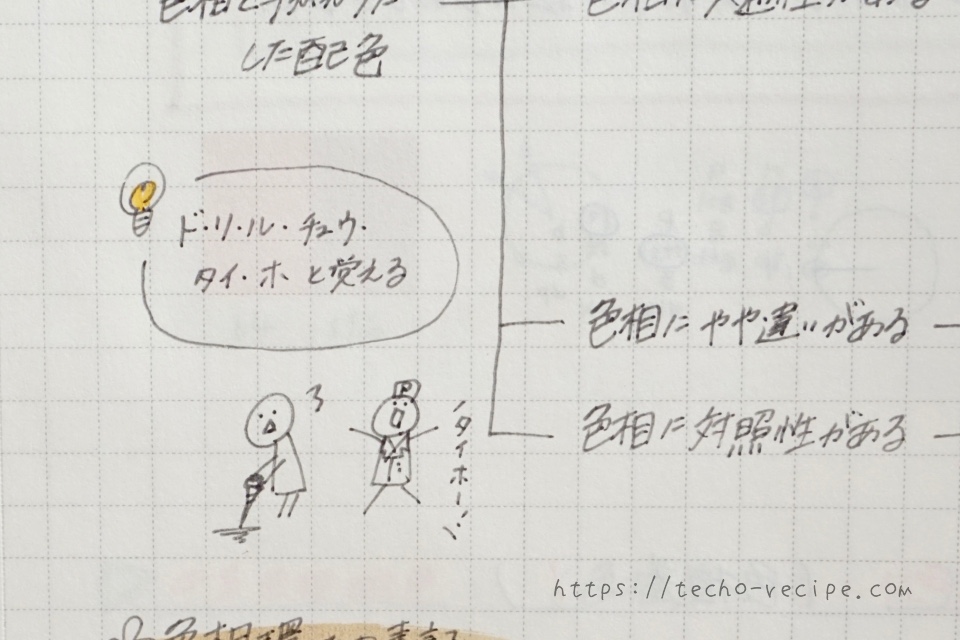 した配色
ド・リ・ル・チュウ・
タイ・ホ と覚える
色相に やや違いがある
色相に 対照性がある
P
タイホー!
https://techo-recipe.com